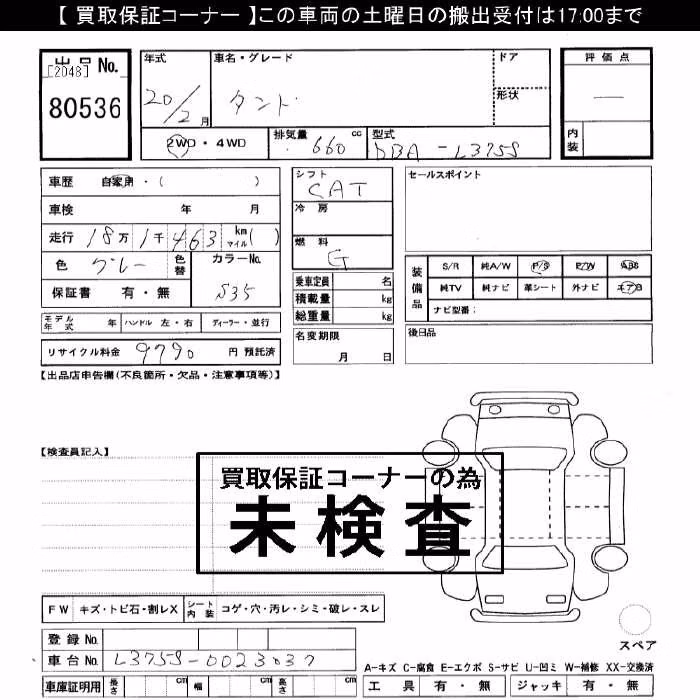 【 買取保証コーナー 】この車両の土曜日の搬出受付は17:00まで
出品 No.
[2048]
80536
年式
20/2月
車名・グレード
タント
ドア
形状
2WD・4WD
排気量 660 cc
型式 DBA-L375S
評価点
―
内装
車歴 自家用・( )
車検 年 月
走行 18万1千463 km マイル( )
色 グレー 色替
カラーNo. S35
保証書 有・無
モデル年式 年 ハンドル 左・右 ディーラー・並行
リサイクル料金 9790 円 預託済
シフト
CAT
冷房
燃料
G
乗車定員 名
積載量 kg
総重量 kg
名変期限
月 日
セールスポイント
装備品
S/R 純A/W P/S P/W ABS
純TV 純ナビ 革シート 外ナビ エアB
ナビ型番:
後日品
【出品店申告欄(不良箇所・欠品・注意事項等)】
【検査員記入】
買取保証コーナーの為
未検査
FW キズ・トビ石・割レX シート内装 コゲ・穴・汚レ・シミ・破レ・スレ
登録 No.
車台 No. L375S-0023037
車庫証明用 長さ cm 幅 cm 高さ cm
スペア
A-キズ C-腐食 E-エクボ S-サビ U-凹ミ W-補修 XX-交換済
工具 有・無 ジャッキ 有・無